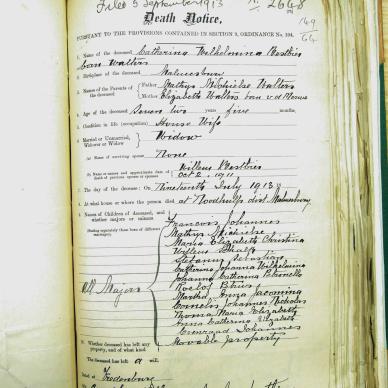 Filed 5 September 1913
No 2668
Death Notice,
PURSUANT TO THE PROVISIONS CONTAINED IN SECTION 9, ORDINANCE No. 104.
1. Name of the deceased Catharina Wilhelmina Bestbier
born Walters
2. Birthplace of the deceased Malmesbury
3. Names of the Parents of the deceased
Father Mathys Michielse Walters
Mother Elizabeth Walters born v d Merwe
4. Age of the deceased Seventy two years five months
5. Condition in life (occupation) House Wife
6. Married or Unmarried, Widower or Widow Widow
Name of surviving spouse None
Name or names and approximate date of death of previous spouse or spouses
Willem Bestbier
Oct 2. 1911
7. The day of the decease: On Nineteenth July 1913
8. At what house or where the person died at Noodhulp dist. Malmesbury
9. Names of Children of deceased, and whether majors or minors
All Majors
Francois Johannes
Mathys Michielse
Maria Elizabeth Christina
Willem
Stefanus Sebastian
Catharina Johanna Wilhelmina
Johanna Catharina Petronella
Roelof Petrus
Martha Anna Jacomina
Cornelis Johannes Nicholas
Maria Elizabeth
Anna Catharina Elizabeth
Coenraad Johannes
10. Whether deceased has left any property, and of what kind Movable property
The deceased has left a will.
Dated at Vredenburg